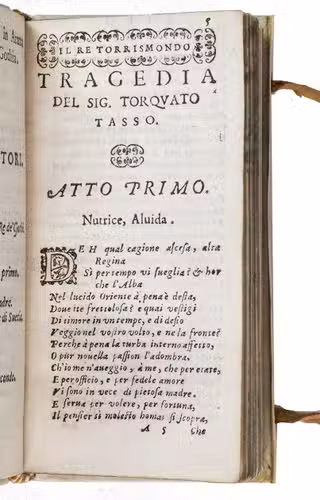 5
IL RE TORRISMONDO
TRAGEDIA
DEL SIG. TORQVATO
TASSO.
ATTO PRIMO.
Nutrice, Aluida.
DEH qual cagione ascosa, alta
Regina
Sì per tempo vi sueglia? & hor
che l'Alba
Nel lucido Oriente à pena è desta,
Doue ite frettolosa? e quai vestigi
Di timore in vn tempo, e di desio
Veggio nel vostro volto, e ne la fronte?
Perche à pena la turba interno affetto,
O pur nouella passion l'adombra.
Ch'io me n'aueggio, à me, che per etate,
E per officio, e per fedele amore
Vi sono in vece di pietosa madre.
E serua per volere, per fortuna,
Il pensier sì molesto homai si scopra,
A 5 Che
TORI.
primo.